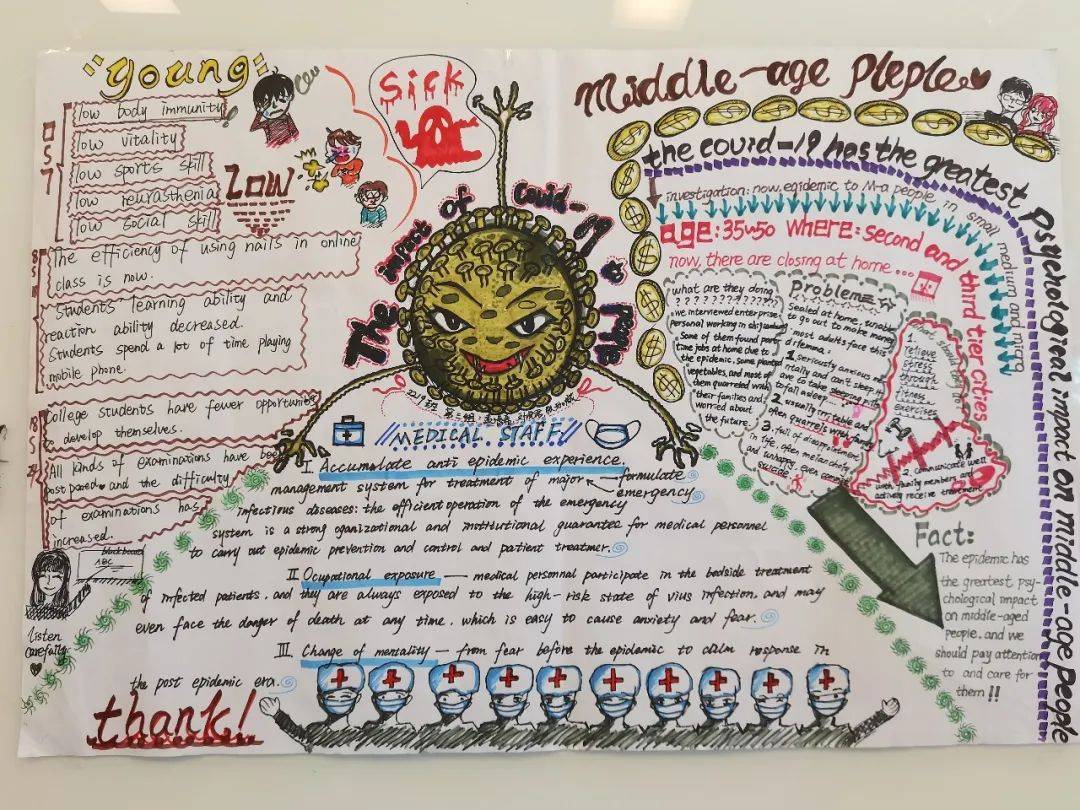 "young"
low body immunity
low vitality
low sports skill
low neurasthenia
low social skill
LOW
Sick
The efficiency of using nails in online
class is now.
Students' learning ability and
reaction ability decreased.
Students spend a lot of time playing
mobile phone.
College students have fewer opportunities
to develop themselves.
All kinds of examinations have been
postpared and the difficulty
of examinations has
increased.
blackboard
ABC
Listen
carefully
thank!
The impact of covid-19
MEDICAL. STAFF
I. Accumalate anti epidemic experience.
management system for treatment of major
formulate
emergency
infectious diseases: the efficient operation of the emergency
system is a strong oganizational and institutional guarantee for medical personnel
to carry out epidemic prevention and control and patient treatmer.
II Ocupational exposure — medical personnal participate in the bedside treatment
of infected patients. and they are always exposed to the high-risk state of vius infection. and may
even face the danger of death at any time. which is easy to cause anxiety and fear.
III. Change of mentality — from fear before the epidemic to calm response in
the post epidemic era.
Middle-age Pleple
the covid-19 has the greatest psychological impact on middle-age people
investigation: now, epidemic to M-a people in small medium and micro
age: 35~50 where: second and third tier cities
now, there are closing at home ...
what are they doing
? ? ? ? ? ? ? ? ? ? ? ?
we interviewed enterprise
personal working in
Some of them found part
time jobs at home due to
the epidemic, some planted
vegetables, and most of
them quarreled with
their families and
worried about
the future.
Problem
Sealed at home, unable
to go out to make money
most adults face this
dilemma:
1. seriously anxious
and can't sleep
have to take sleeping
to fall asleep
2. usually irritable and
often quarrels with family
3. full of disappointment
in life, often melancholy
and unhappy, even
suicide
1.
relieve
stress
through
fitness
exercises
2. communicate well
with family members and
actively receive treatment
Fact:
The epidemic has
the greatest psy-
chological impact
on middle-aged
people. and we
should pay attention
to and care for
them !!